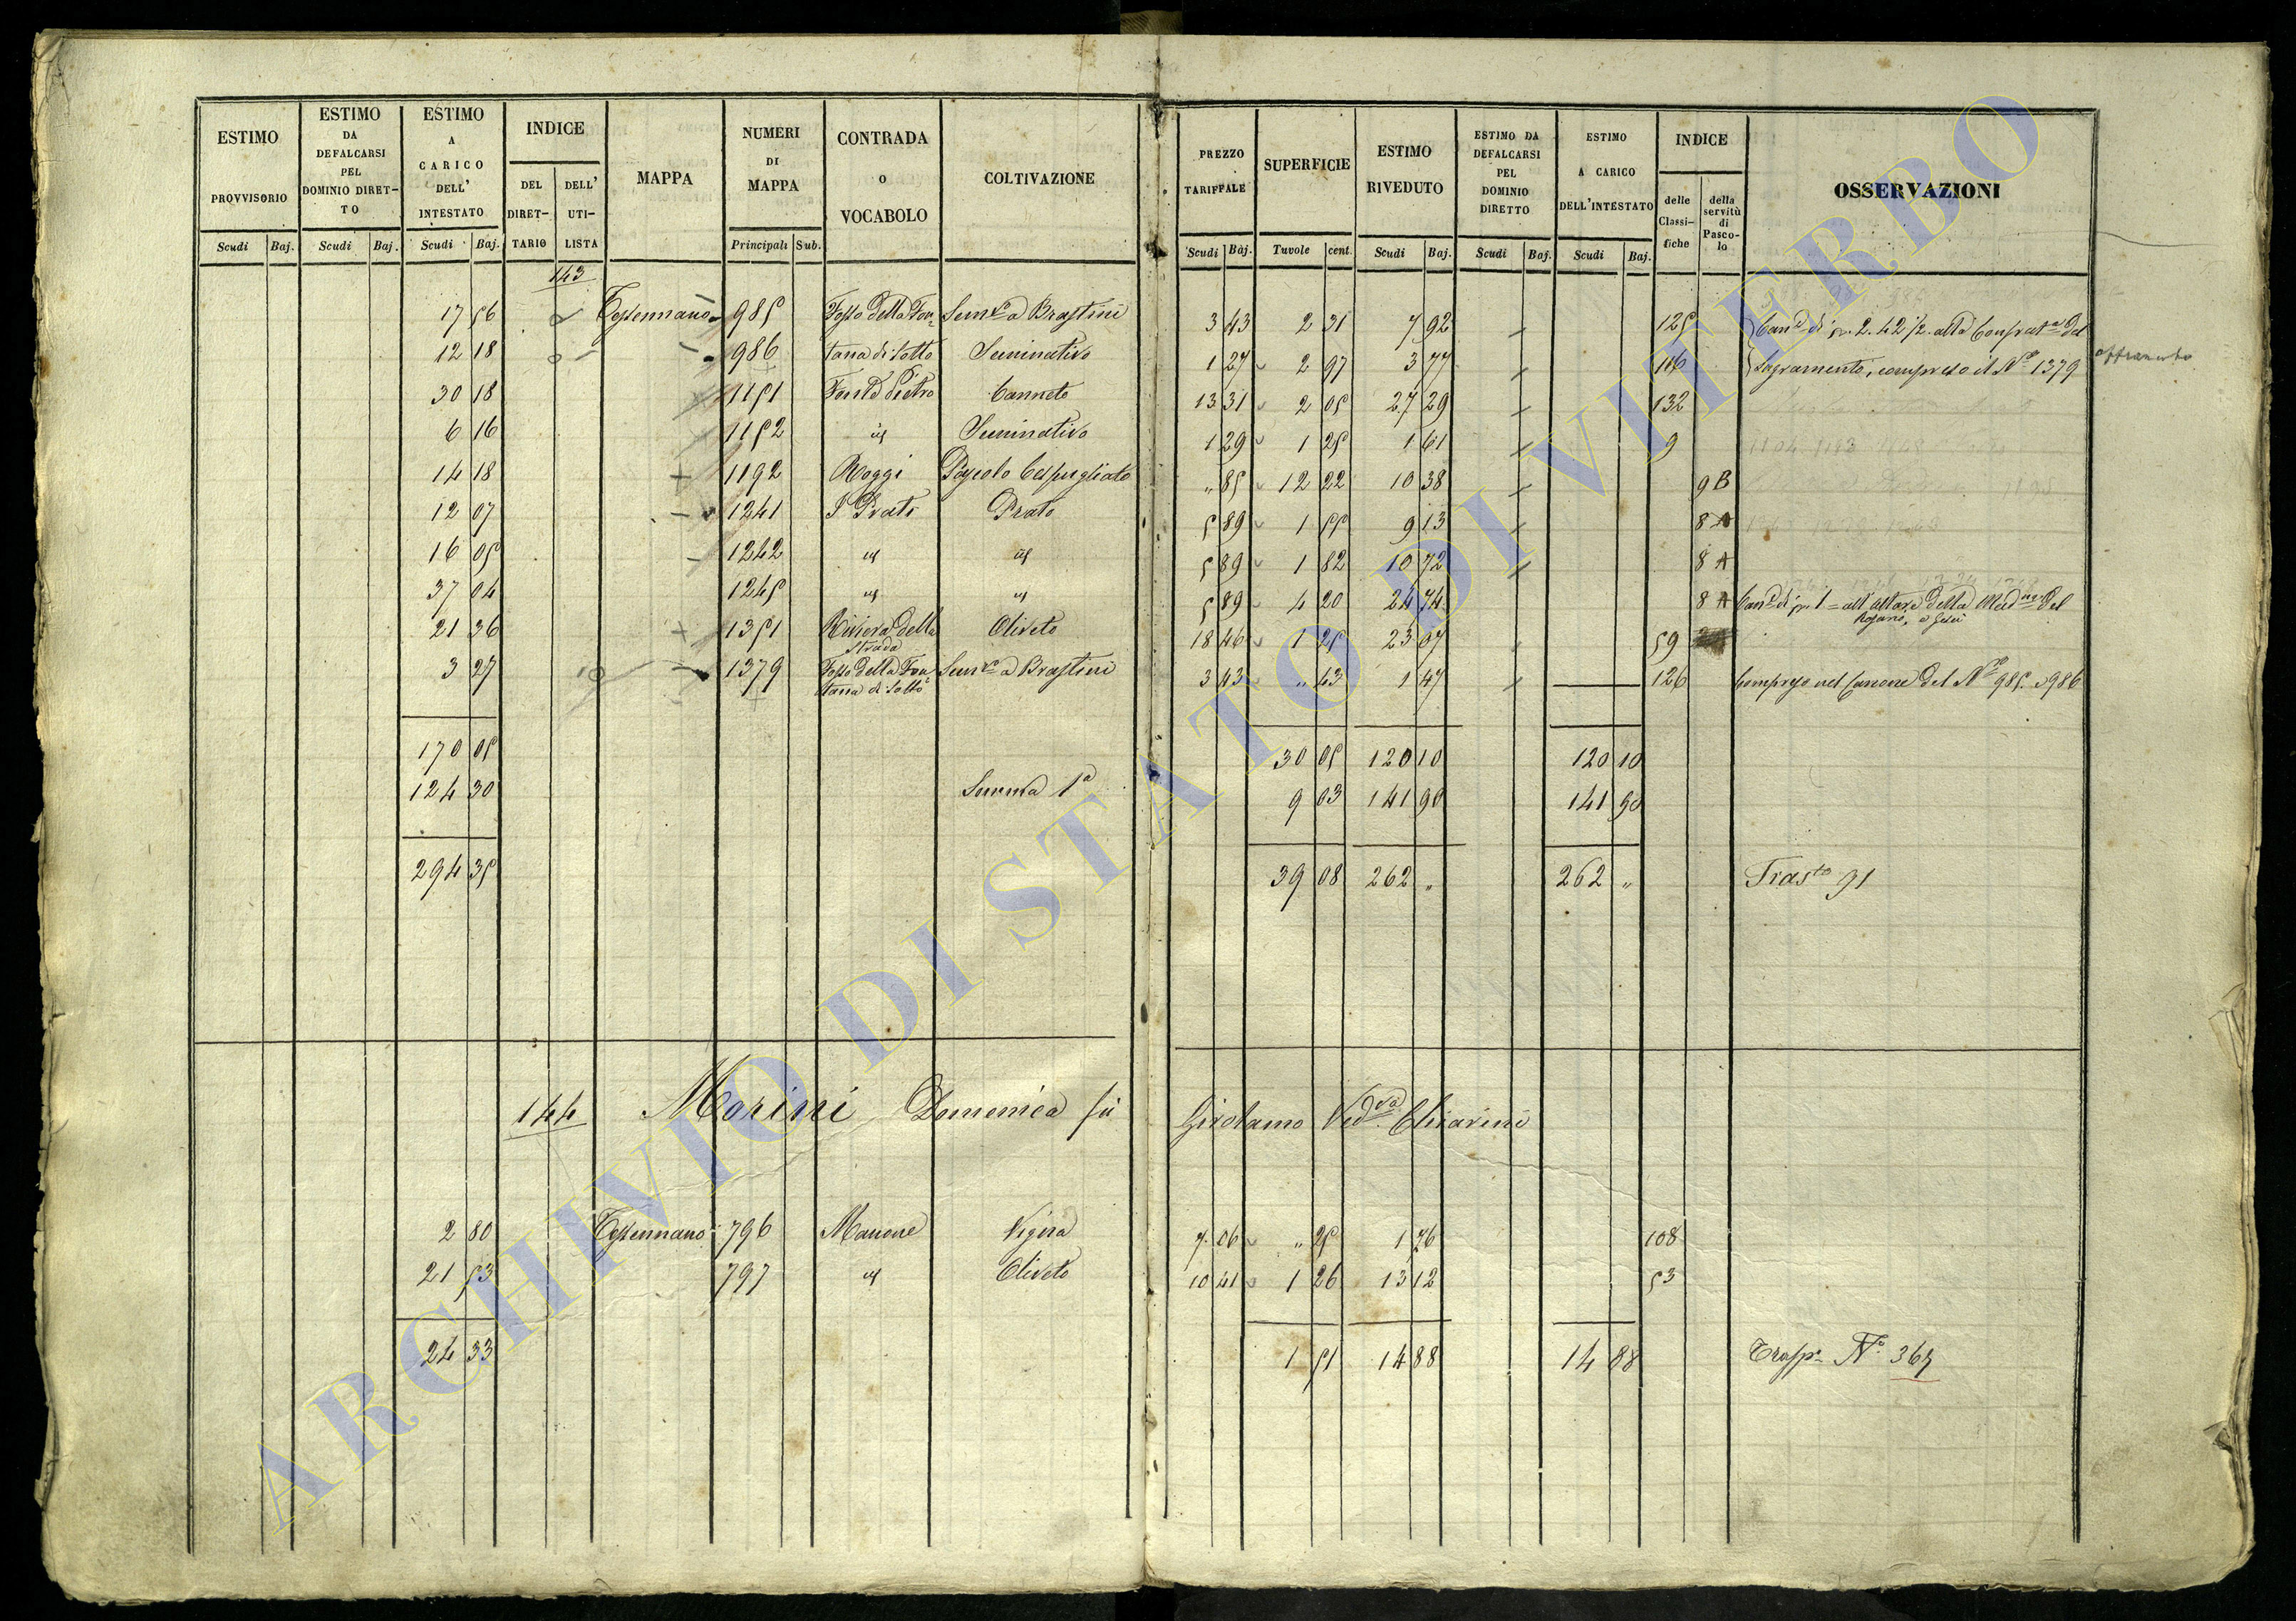 ESTIMO PROVVISORIO | ESTIMO DA DEFALCARSI PEL DOMINIO DIRET-TO | ESTIMO A CARICO DELL' INTESTATO | INDICE DEL DIRET-TARIO | DELL' UTI-LISTA | MAPPA | NUMERI DI MAPPA | CONTRADA O VOCABOLO | COLTIVAZIONE | PREZZO TARIFFALE | SUPERFICIE | ESTIMO RIVEDUTO | ESTIMO DA DEFALCARSI PEL DOMINIO DIRETTO | ESTIMO A CARICO DELL'INTESTATO | INDICE delle Classi-fiche | della servitù di Pasco-lo | OSSERVAZIONI
Scudi | Baj. | Scudi | Baj. | Scudi | Baj. | Principali | Sub. | Scudi | Baj. | Tavole | cent. | Scudi | Baj. | Scudi | Baj. | Scudi | Baj.
143
17 56 | Tessennano | 985 | Fosso della Fon= | Semvo a Brastini | 3 43 | 2 31 | 7 92 | 125 | Cane di 2.42 1/2 alla Confrata del
12 18 | 986 | tana di Sotto | Seminativo | 1 27 | 2 97 | 3 77 | 116 | Sagramento, compreso il No 1379
30 18 | 1151 | Canneto | 13 31 | 2 05 | 27 29 | 132
6 16 | 1152 | id | Seminativo | 1 29 | 1 25 | 1 61 | 9
14 18 | 1192 | Roggi | Pascolo Cespugliato | " 85 | 12 22 | 10 38 | 9 B
12 07 | 1241 | I Prati | Prato | 5 89 | 1 55 | 9 13 | 8 A
16 05 | 1242 | id | id | 5 89 | 1 82 | 10 72 | 8 A
37 04 | 1245 | id | id | 5 89 | 4 20 | 24 74 | 8 A | Cane di 1 = all'altare della Madna del
Rosario, e Gesù
21 36 | 1351 | Riviera della | Oliveto | 18 46 | 1 25 | 23 07 | 59
Strada
3 27 | 1379 | Fosso della Fon= | Semvo a Brastini | 3 43 | " 43 | 1 47 | 126 | Compreso nel Canone del No 985. e 986
tana di Sotto
170 05 | 30 05 | 120 10 | 120 10
124 30 | Somma 1a | 9 03 | 141 90 | 141 90
294 35 | 39 08 | 262 " | 262 " | Trasto 91
144 Morini Domenica fù Girolamo Vedva Chiarini
2 80 | Tessennano | 796 | Manone | Vigna | 7 06 | " 25 | 1 76 | 108
21 53 | 797 | id | Oliveto | 10 41 | 1 26 | 13 12 | 53
24 33 | 1 51 | 14 88 | 14 88 | Trasp. No.
ARCHIVIO DI STATO DI VITERBO